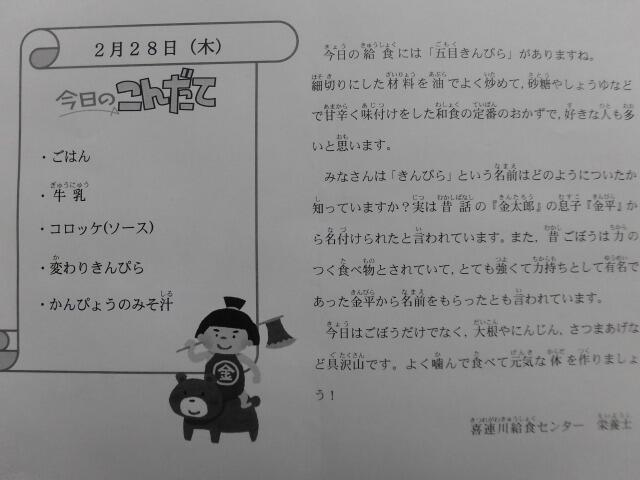 2月28日（木）
今日のこんだて
・ごはん
・牛乳
・コロッケ(ソース)
・変わりきんぴら
・かんぴょうのみそ汁
金
今日の給食には「五目きんぴら」がありますね。
細切りにした材料を油でよく炒めて,砂糖やしょうゆなど
で甘辛く味付けをした和食の定番のおかずで,好きな人も多
いと思います。
みなさんは「きんぴら」という名前はどのようについたか
知っていますか？実は昔話の『金太郎』の息子『金平』か
ら名付けられたと言われています。また,昔ごぼうは力の
つく食べ物とされていて,とても強くて力持ちとして有名で
あった金平から名前をもらったとも言われています。
今日はごぼうだけでなく,大根やにんじん,さつまあげな
ど具沢山です。よく噛んで食べて元気な体を作りましょ
う！
喜連川給食センター　栄養士